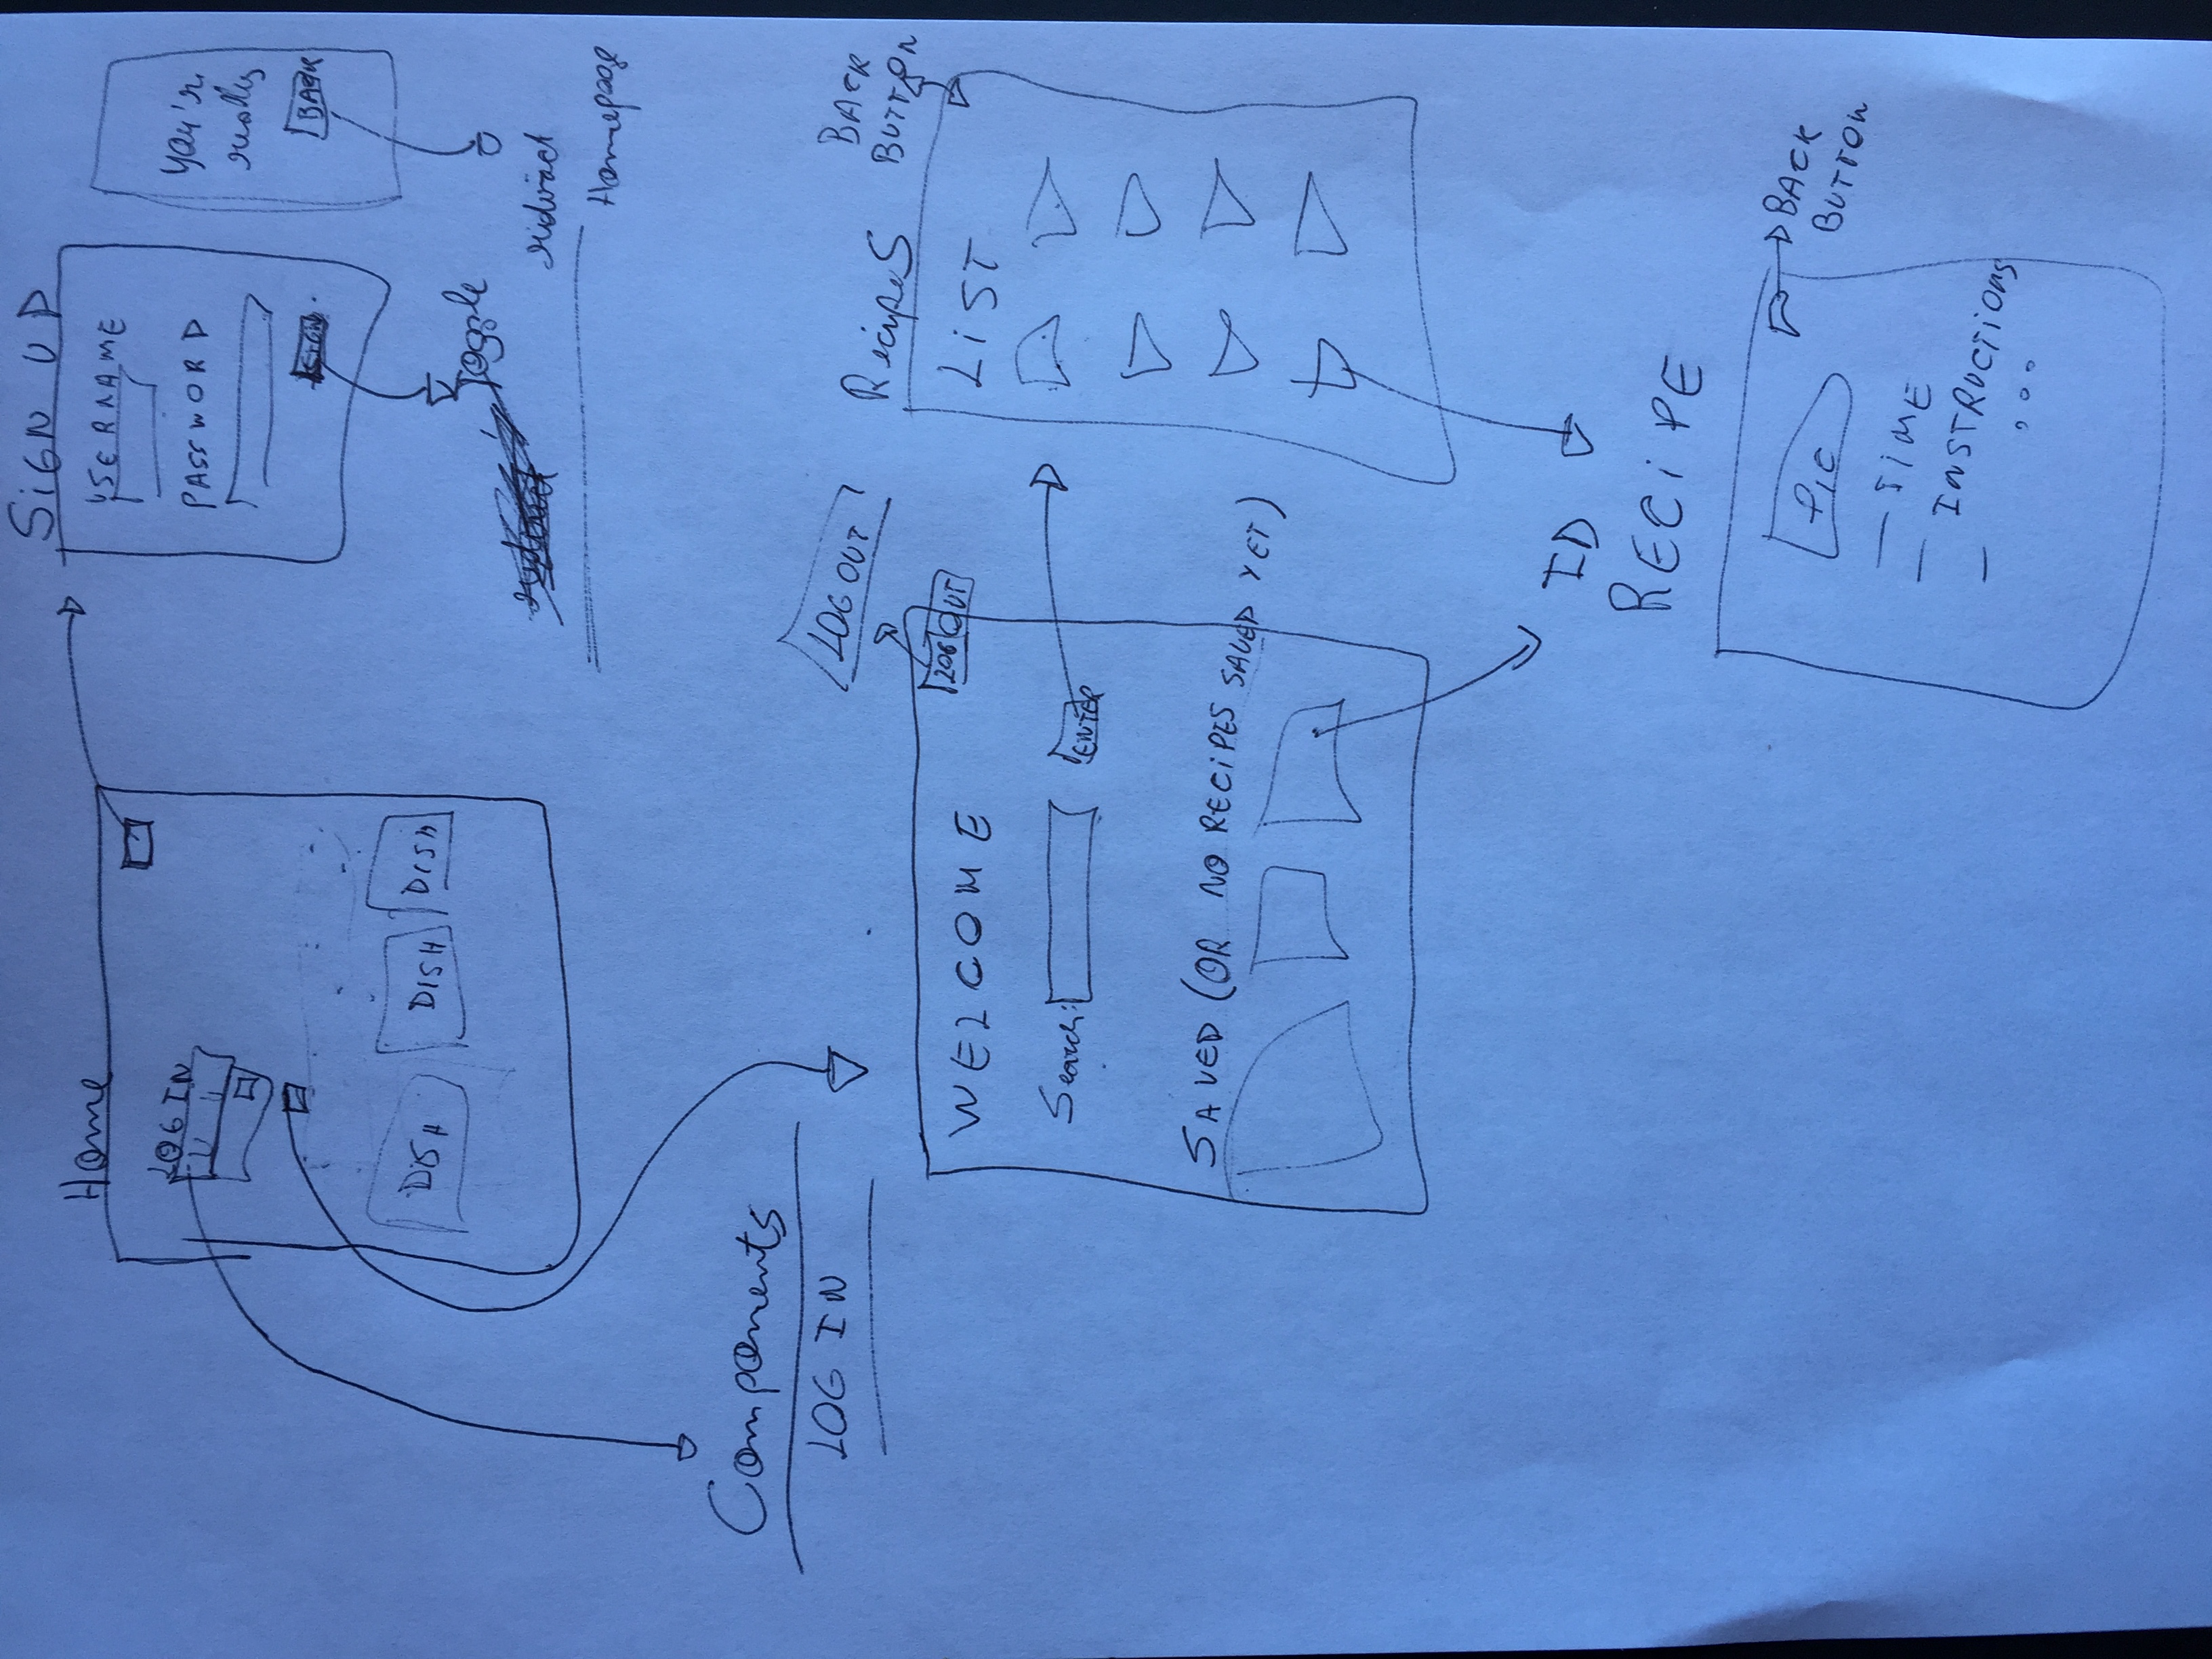 Home
LOG IN
DISH
DISH
DISH
SiGN UP
USERNAME
PASSWORD
SIGN
Toggle
you're
ready
BACK
ridirect
Homepage
Components
LOG IN
LOG OUT
WELCOME
LOG OUT
Search:
ENTER
SAVED (OR NO RECiPES SAVED YET)
RecipeS
BACK
BUTTON
LiST
ID
RECiPE
PIC
BACK
BUTTON
TiME
INSTRUCTiONS
...